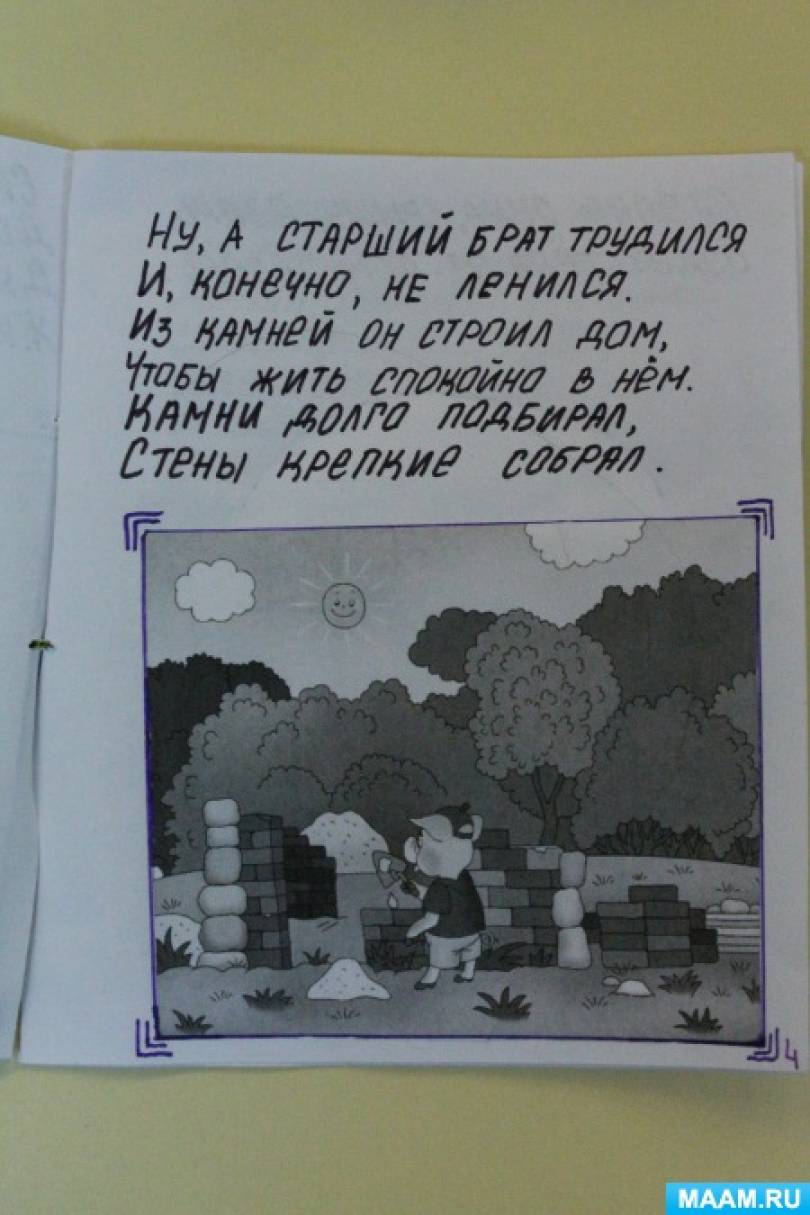 Ну, а старший брат трудился
И, конечно, не ленился.
Из камней он строил дом,
Чтобы жить спокойно в нём.
Камни долго подбирал,
Стены крепкие собрал.
4
MAAM.RU